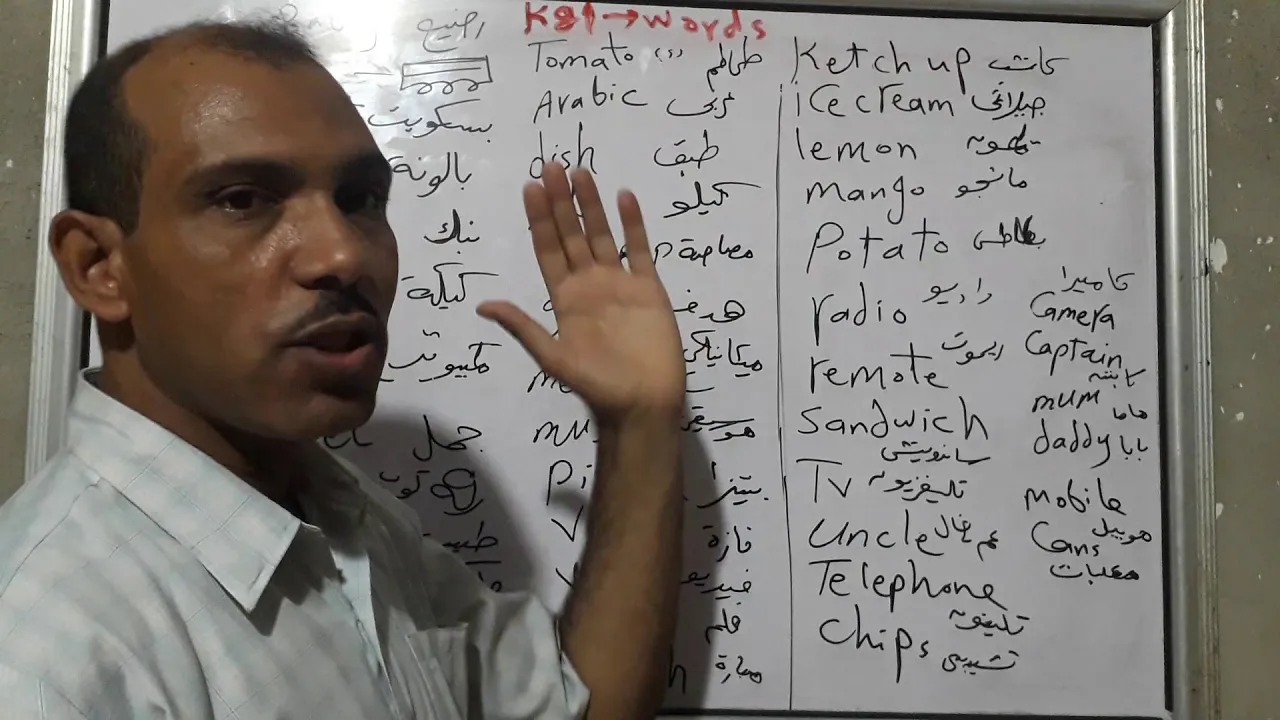 KG1 → words
Tomato (s) طماطم
Arabic عربي
dish طبق
كيلو
مصاصة
هدف
ميكانيكي
موسيقى
بيتزا
فازة
فيديو
قلم
بسكويت
بالونة
بنك
كيكة
كمبيوتر
جمل
كوب
Ketchup كاتشب
icecream جيلاتي
lemon ليمون
mango مانجو
Potato بطاطس
radio راديو
remote ريموت
Sandwich
ساندويتش
TV تليفزيون
Uncle عم خال
Telephone
تليفون
Chips
تشيبسي
كاميرا
Camera
Captain
كابتن
mum ماما
daddy بابا
Mobile
موبيل
Cans
معلبات